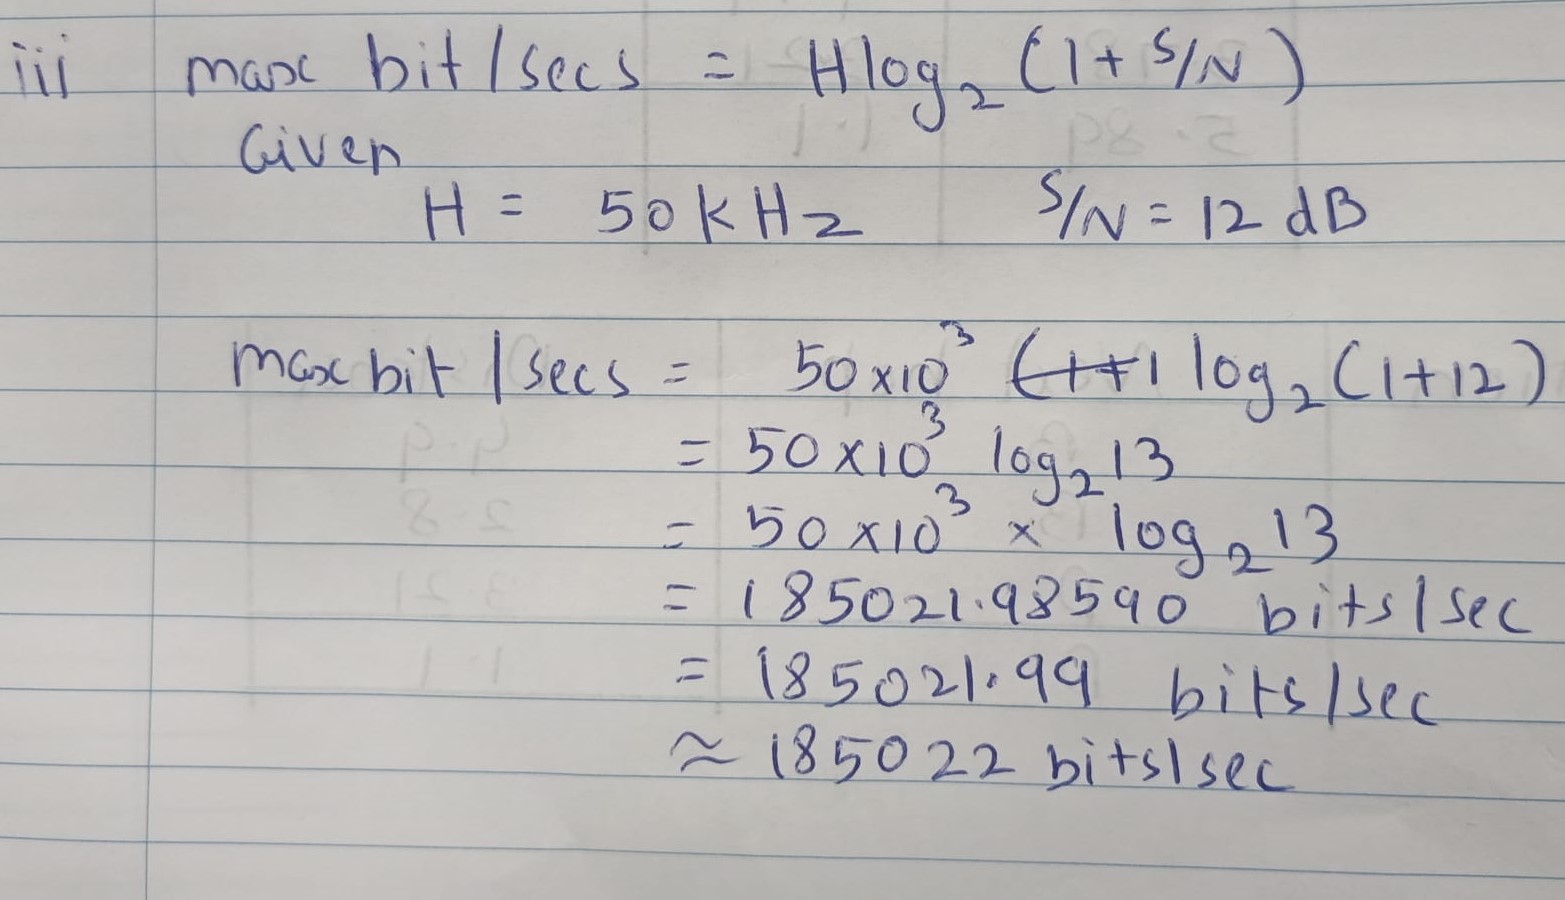 iii max bit/secs = H log₂ (1 + S/N)
Given
H = 50 kHz S/N = 12 dB
max bit/secs = 50×10³ log₂ (1+12)
= 50×10³ log₂ 13
= 50×10³ × log₂ 13
= 185021.98590 bits/sec
= 185021.99 bits/sec
≈ 185022 bits/sec